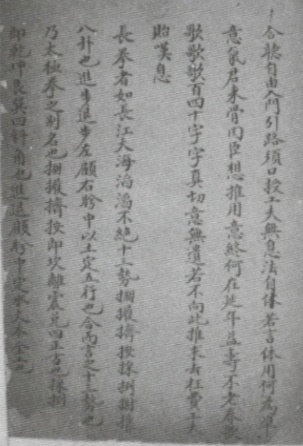 合聽自由入門引路須口授工夫無息法自休若言体用何為準
意氣君來骨肉臣想推用意終何在延年益壽不老春
歌兮歌兮百四十字字真切意無遺若不向此推求去枉費工夫
貽嘆息
長拳者如長江大海滔滔不絕十三勢掤捋擠按採挒肘靠
八卦也進步退步左顧右盼中定五行也合而言之十三勢也
乃太極拳之別名也掤捋擠按即坎離震兌四正方也採挒
即乾坤艮巽四斜角也進退顧盼中定水火木金土也